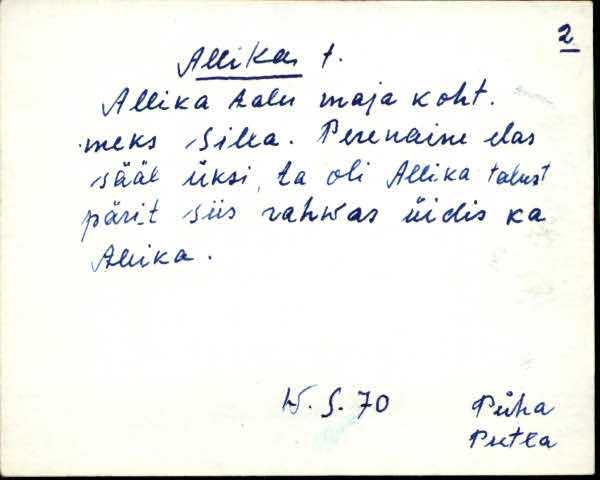 2
Allikas t.
Allika talu maja koht.
meks Silla. Perenaine elas
sääl üksi, ta oli Allika talust
pärit siis rahwas üidis ka
Allika.
15. S. 70 Püha
Putla